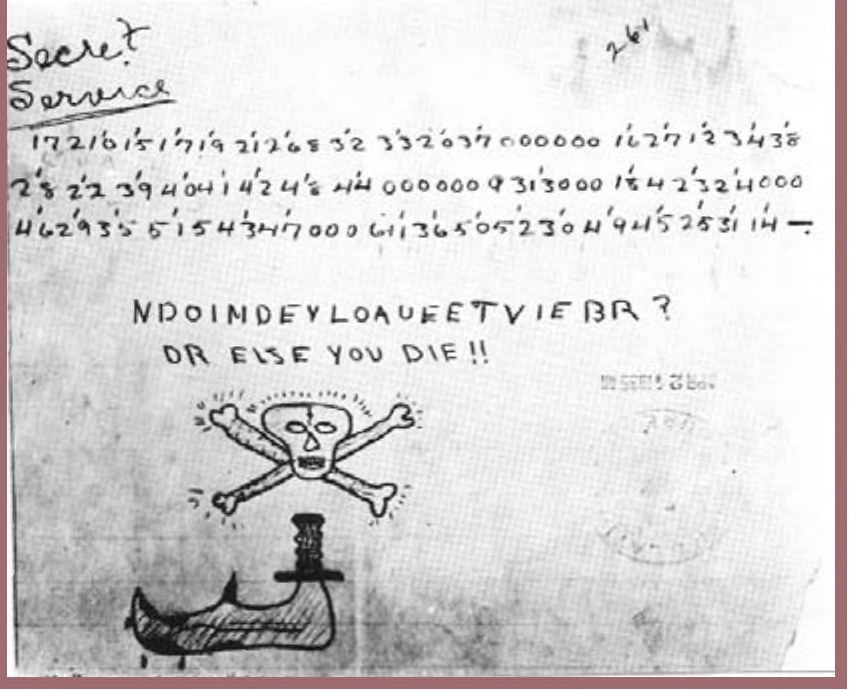 Secret
Service
261
17216151719 21268 32 332037 000000 1627123438
28 22 39 4041 4248 44 000000 9 313000 184 2324000
46293535 5154347000 61136505230 494525 3114 —.
NDOIMDEYLOAUEETVIEBR?
OR ELSE YOU DIE!!